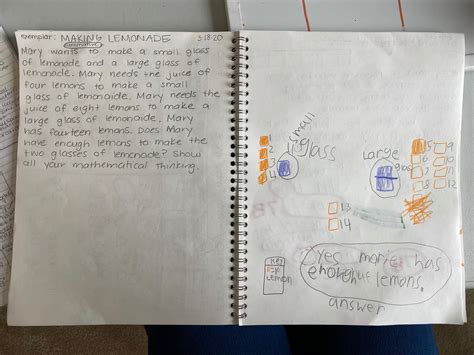 exemplar: MAKING LEMONADE
summative
3-18-20
Mary wants to make a small glass
of lemonade and a large glass of
lemonade. Mary needs the juice of
four lemons to make a small
glass of lemonade. Mary needs the
juice of eight lemons to make a
large glass of lemonade. Mary
has fourteen lemons. Does Mary
have enough lemons to make the
two glasses of lemonade? Show
all your mathematical thinking.
small
glass
1
2
3
4
Large
glass
5 9
6 10
7 11
8 12
13
14
key
lemon
yes marie has
lemons.
answer